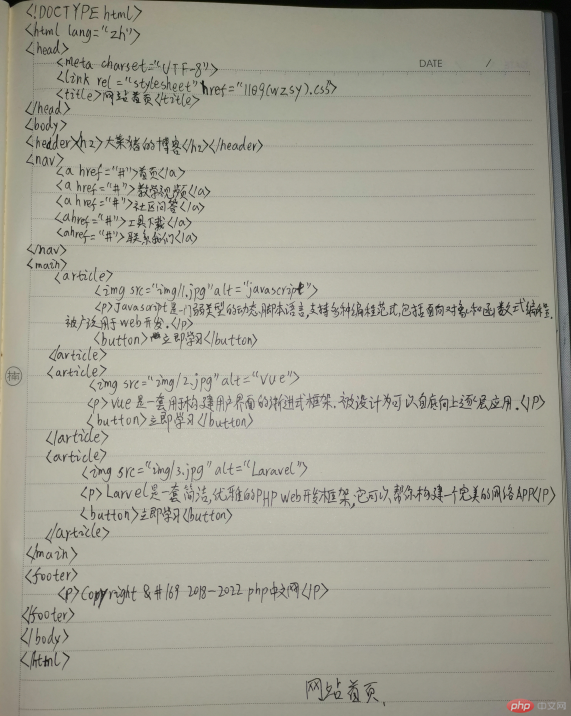 <!DOCTYPE html>
<html lang="zh">
<head>
DATE /
<meta charset="UTF-8">
<link rel="stylesheet" href="1109(wzsy).css">
<title>网站首页</title>
</head>
<body>
<hedder><h2>大紫猪的博客</h2></header>
<nav>
<a href="#">首页</a>
<a href="#">教学视频</a>
<a href="#">社区问答</a>
<ahref="#">工具下载</a>
<ahref="#">联系我们</a>
</nav>
<main>
<article>
<img src="img/1.jpg" alt="javascript">
<p>Javascript是一门弱类型的动态脚本语言,支持多种编程范式,包括面向对象和函数式编程,
被广泛用于web开发.</p>
<button>立即学习</button>
</article>
<article>
<img src="img/2.jpg" alt="vue">
<p>vue是一套用于构建用户界面的渐进式框架.被设计为可以自底向上逐层应用.</p>
<button>立即学习</button>
</article>
<article>
<img src="img/3.jpg" alt="Laravel">
<p>Larvel是一套简洁,优雅的PHP Web开发框架,它可以,帮你构建一个完美的网络APP</p>
<button>立即学习<button>
</article>
</main>
<footer>
<p>Copyright &#169 2018-2022 php中文网</p>
</footer>
</body>
</html>
网站首页.
php 中文网